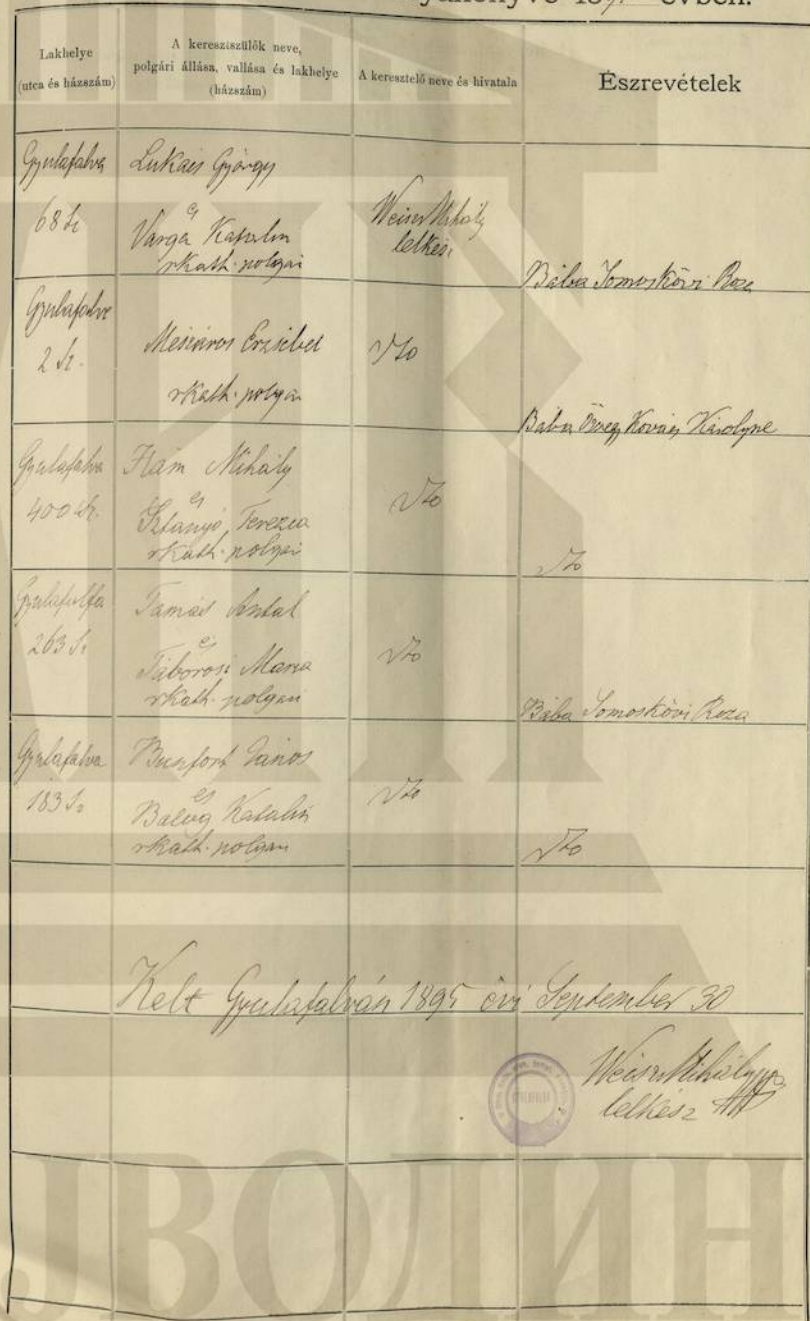 évben.
Lakhelye
(utca és házszám)
A keresztszülők neve,
polgári állása, vallása és lakhelye
(házszám)
A keresztelő neve és hivatala
Észrevételek
Gyulafalva
68 Sz
Lukács György
és
Varga Katalin
rkath. polgári
Weiser Mihály
lelkész
Bába Somoskövi Roza
Gyulafalva
2 Sz.
Mészáros Erzsébet
rkath. polgári
Vto
Bába Özvegy Kovács Károlyne
Gyulafalva
400 Sz.
Hám Mihály
és
Sztanyó Terezea
rkath. polgári
Vto
Vto
Gyulafalfa
263 Sz
Tamás Antal
és
Táborosi Maria
rkath. polgári
Vto
Bába Somoskövi Roza
Gyulafalva
183 Sz
János
és
Balog Katalin
rkath. polgári
Vto
Vto
Kelt Gyulafalván 1895 évi September 30
Weiser Mihály
lelkész
ЈВОДИН